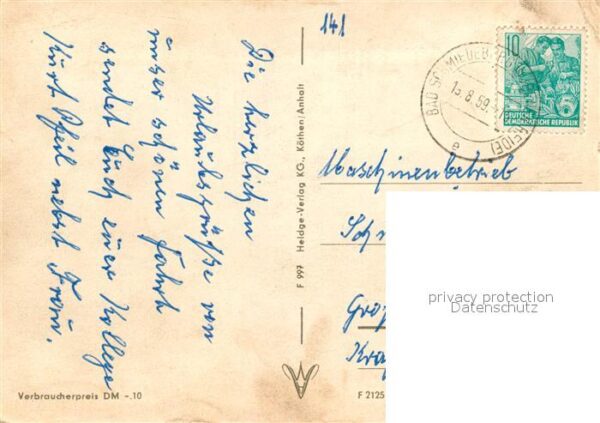 141
Die herzlichen
Urlaubsgrüße von
unser schönen Fahrt
sendet Euch euer Kollege
Kurt Pfeil nebst Frau.
Verbraucherpreis DM -.10
F 997 Heldge-Verlag KG., Köthen/Anhalt
10
DEUTSCHE
DEMOKRATISCHE REPUBLIK
BAD SCHMIEDEBERG
13.8.59.
HEIDE)
e
Maschinenbetrieb
Sch
Gro
Kra
F 2125
privacy protection
Datenschutz